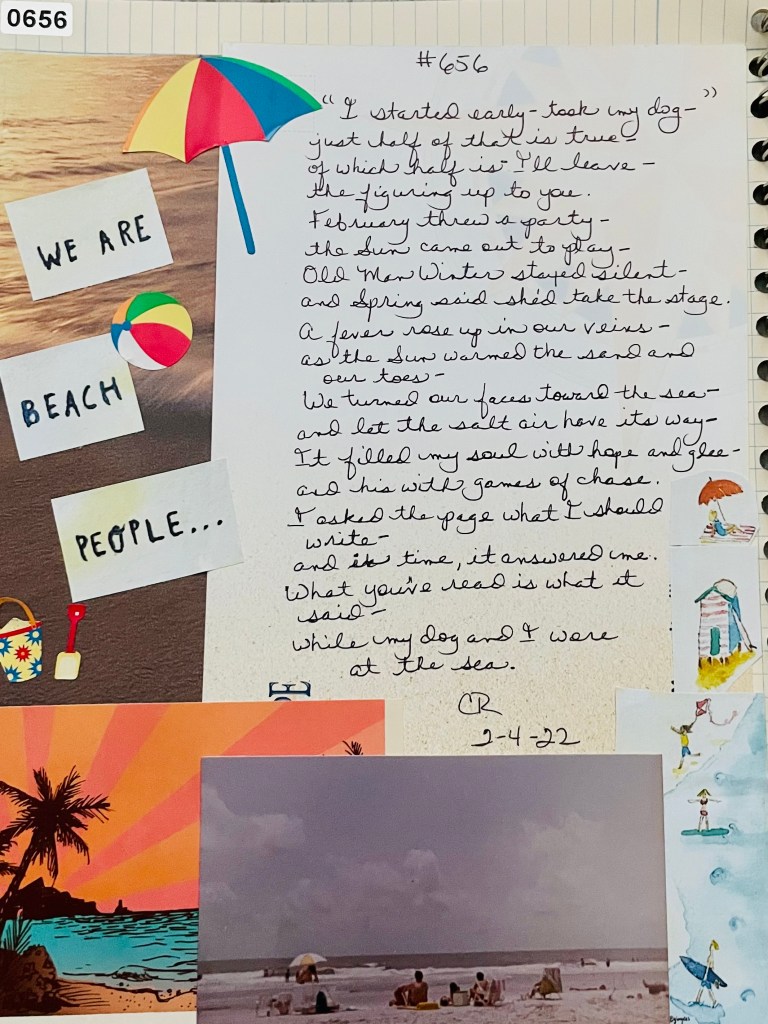 0656
#656
"I started early - took my dog -"
just half of that is true -
of which half is - I'll leave -
the figuring up to you.
February threw a party -
the Sun came out to play -
Old Man Winter stayed silent -
and Spring said she'd take the stage.
A fever rose up in our veins -
as the Sun warmed the sand and
our toes -
We turned our faces toward the sea -
and let the salt air have its way -
It filled my soul with hope and glee -
and his with games of chase.
I asked the page what I should
write -
and in time, it answered me.
What you've read is what it
said -
while my dog and I were
at the sea.
CR
2-4-22
WE ARE
BEACH
PEOPLE...